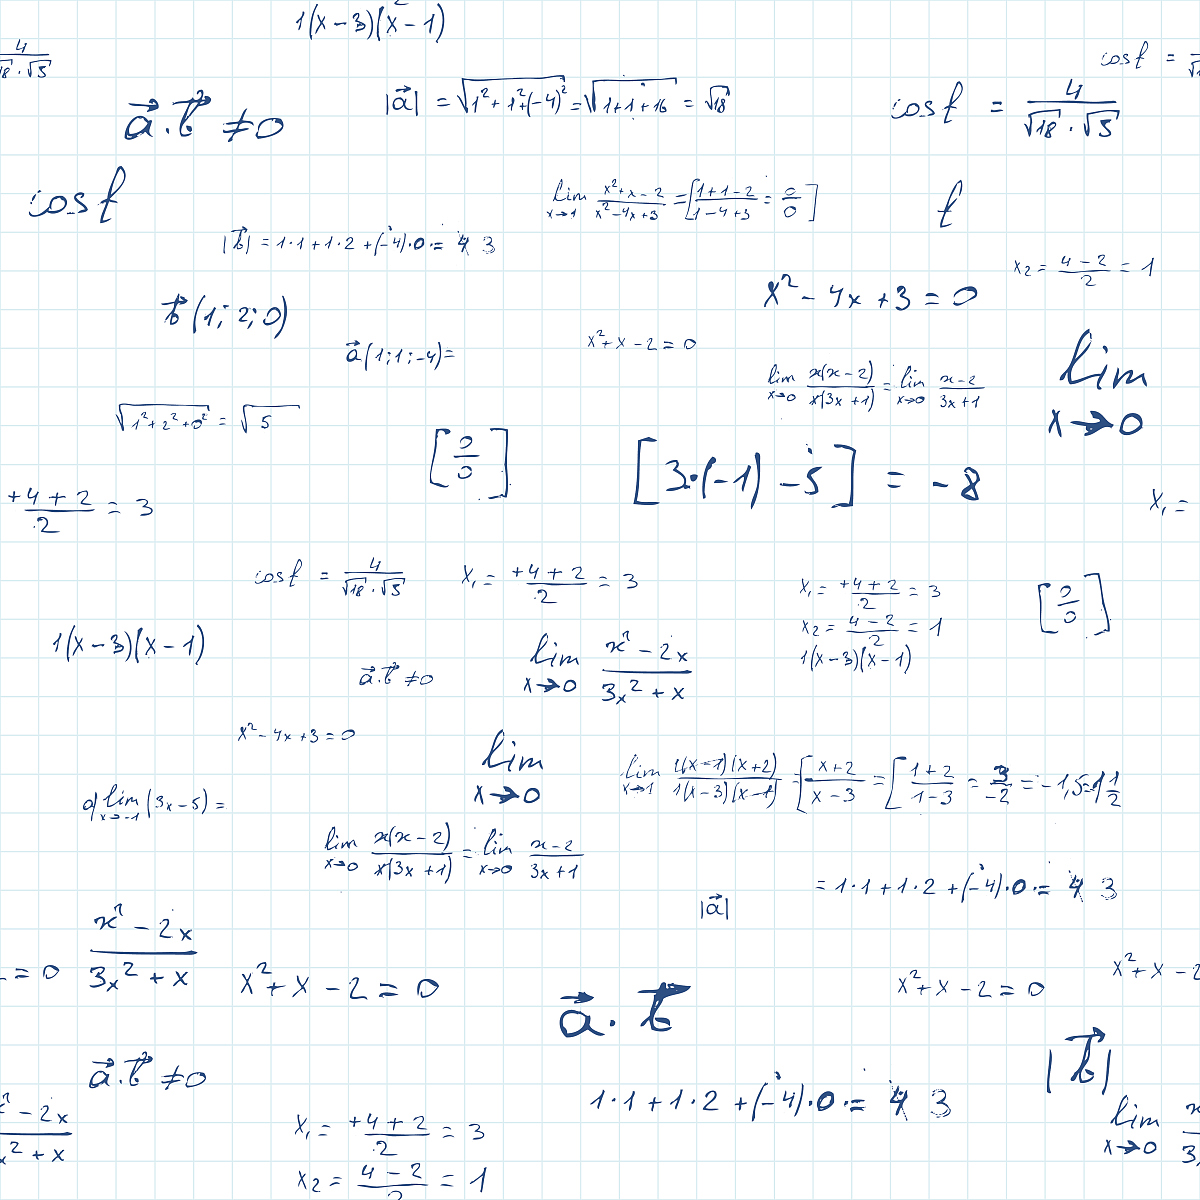 1(x-3)(x-1)
cos f =
4/(√18·√5)
|a⃗| = √(1²+1²+(-4)²) = √(1+1+16) = √18
cos f = 4/(√18·√5)
a⃗·b⃗ ≠ 0
cos f
lim x→1 (x²+x-2)/(x²-4x+3) = [(1+1-2)/(1-4+3) = 0/0]
f
|b⃗| = 1·1+1·2+(-4)·0 = 4 3
x2 = (4-2)/2 = 1
x²-4x+3=0
b⃗(1;2;0)
x²+x-2=0
a⃗(1;1;-4)=
lim x→0
lim x→0 x(x-2)/x(3x+1) = lim x→0 (x-2)/(3x+1)
√(1²+2²+0²) = √5
[0/0]
[3·(-1)-5] = -8
+4+2/2 = 3
x1 =
cos f = 4/(√18·√5)
x1 = (+4+2)/2 = 3
x1 = (+4+2)/2 = 3
x2 = (4-2)/2 = 1
1(x-3)(x-1)
[0/0]
1(x-3)(x-1)
a⃗·b⃗ ≠ 0
lim x→0 (x²-2x)/(3x²+x)
x²-4x+3=0
lim x→0
lim x→1 1(x-1)(x+2)/1(x-3)(x-1) = [(x+2)/(x-3) = [(1+2)/(1-3) = 3/-2 = -1,5=1 1/2
a) lim x→-1 (3x-5) =
lim x→0 x(x-2)/x(3x+1) = lim x→0 (x-2)/(3x+1)
= 1·1+1·2+(-4)·0 = 4 3
|a⃗|
(x²-2x)/(3x²+x)
= 0
x²+x-2=0
x²+x-2=0
x²+x-2
a⃗·b⃗
a⃗·b⃗ ≠ 0
|b⃗|
1·1+1·2+(-4)·0 = 4 3
-2x
x²+x
x1 = (+4+2)/2 = 3
x2 = (4-2)/2 = 1
lim x→0